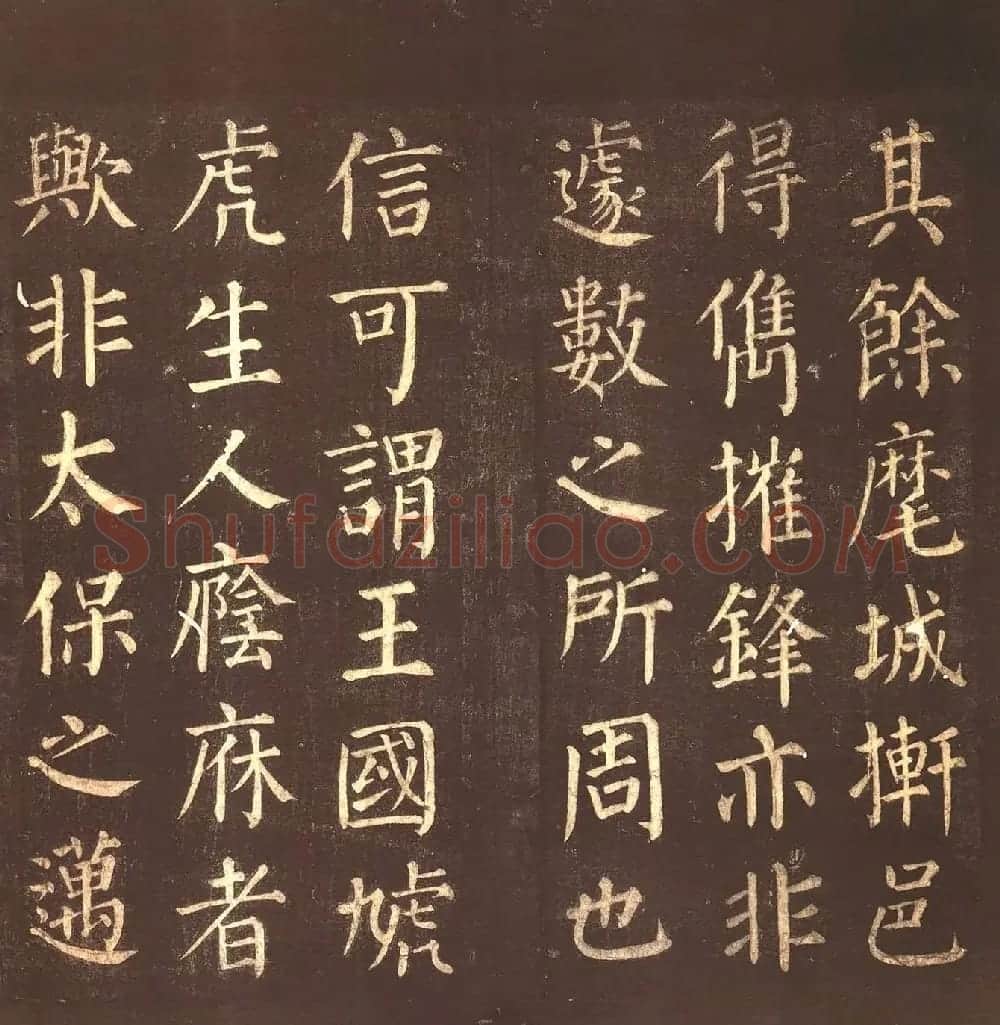 其餘麾城摲邑
得儁摧鋒亦非
遽數之所周也
信可謂王國虓
虎生人廕庥者
歟非太保之邁
Shufaziliao.COM